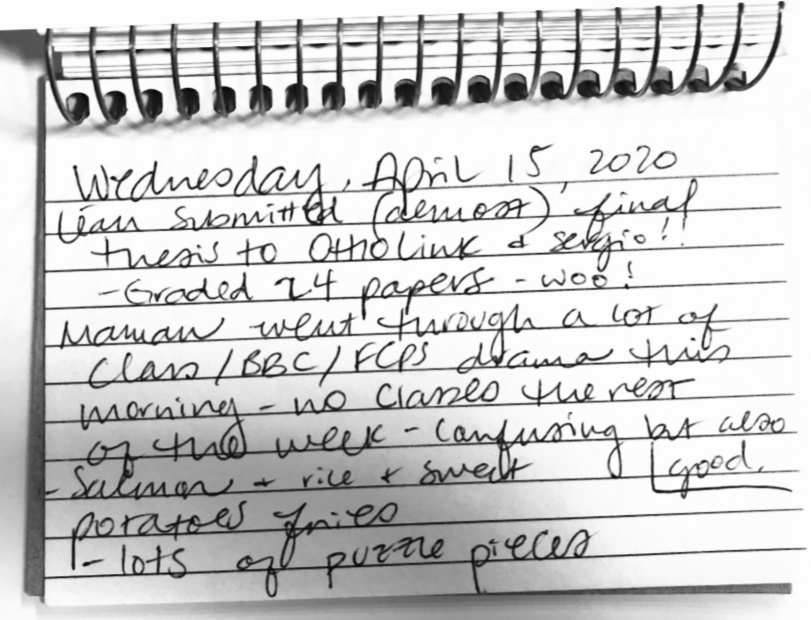 Wednesday, April 15, 2020
Lean submitted (almost) final
thesis to Otholink & sergio!!
- Graded 24 papers - woo!
Maman went through a lot of
Class/BBC/FCPS drama this
morning - no classes the rest
of the week - confusing but also
good.
- Salmon + rice + sweet
potatoes fries
- lots of puzzle pieces